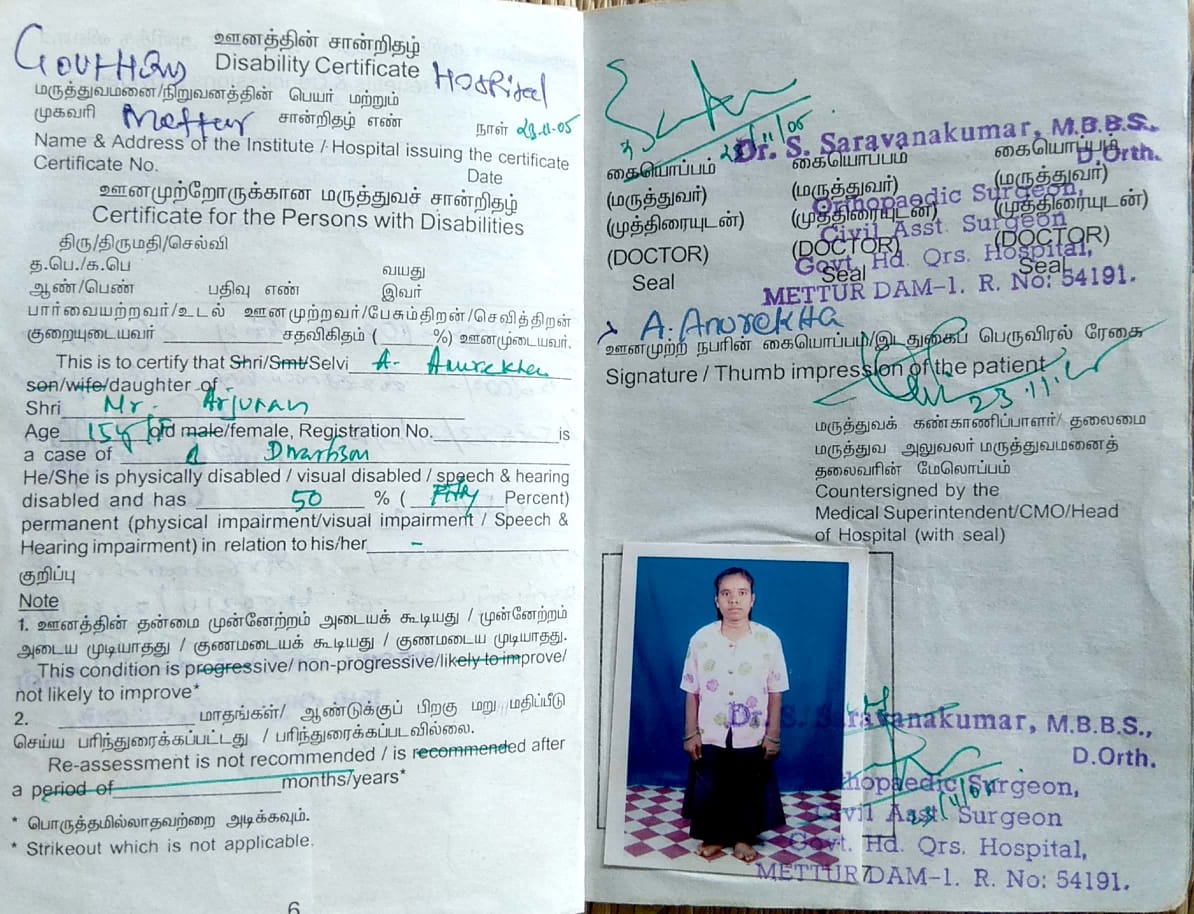 ஊனத்தின் சான்றிதழ்
Disability Certificate
Hospital
மருத்துவமனை/நிறுவனத்தின் பெயர் மற்றும்
முகவரி Mettur சான்றிதழ் எண் நாள் 23.11.05
Name & Address of the Institute / Hospital issuing the certificate
Certificate No. Date
ஊனமுற்றோருக்கான மருத்துவச் சான்றிதழ்
Certificate for the Persons with Disabilities
திரு/திருமதி/செல்வி
த.பெ./க.பெ வயது
ஆண்/பெண் பதிவு எண் இவர்
பார்வையற்றவர்/உடல் ஊனமுற்றவர்/பேசும்திறன்/செவித்திறன்
குறையுடையவர் சதவிகிதம் ( %) ஊனமுடையவர்.
This is to certify that Shri/Smt/Selvi A. Anurekha
son/wife/daughter of
Shri Mr. Arjunan
Age 15y old male/female, Registration No. is
a case of Dwarfism
He/She is physically disabled / visual disabled / speech & hearing
disabled and has 50 % ( Fifty Percent)
permanent (physical impairment/visual impairment / Speech &
Hearing impairment) in relation to his/her -
குறிப்பு
Note
1. ஊனத்தின் தன்மை முன்னேற்றம் அடையக் கூடியது / முன்னேற்றம்
அடைய முடியாதது / குணமடையக் கூடியது / குணமடைய முடியாதது.
This condition is progressive/ non-progressive/likely to improve/
not likely to improve*
2. மாதங்கள்/ ஆண்டுக்குப் பிறகு மறு மதிப்பீடு
செய்ய பரிந்துரைக்கப்பட்டது / பரிந்துரைக்கப்படவில்லை.
Re-assessment is not recommended / is recommended after
a period of months/years*
* பொருத்தமில்லாதவற்றை அடிக்கவும்.
* Strikeout which is not applicable.
6
23/11/05
Dr. S. Saravanakumar, M.B.B.S.
D.Orth.
கையொப்பம் கையொப்பம் கையொப்பம்
(மருத்துவர்) (மருத்துவர்) (மருத்துவர்)
Orthopaedic Surgeon,
(முத்திரையுடன்) (முத்திரையுடன்) (முத்திரையுடன்)
Civil Asst. Surgeon
(DOCTOR) (DOCTOR) (DOCTOR)
Govt. Hd. Qrs. Hospital,
Seal Seal Seal
METTUR DAM-1. R. No: 54191.
A. Anurekha
ஊனமுற்ற நபரின் கையொப்பம்/இடதுகைப் பெருவிரல் ரேகை
Signature / Thumb impression of the patient
23.11.05
மருத்துவக் கண்காணிப்பாளர்/ தலைமை
மருத்துவ அலுவலர் மருத்துவமனைத்
தலைவரின் மேலொப்பம்
Countersigned by the
Medical Superintendent/CMO/Head
of Hospital (with seal)
Dr. S. Saravanakumar, M.B.B.S.,
D.Orth.
Orthopaedic Surgeon,
Civil Asst. Surgeon
Govt. Hd. Qrs. Hospital,
METTUR DAM-1. R. No: 54191.